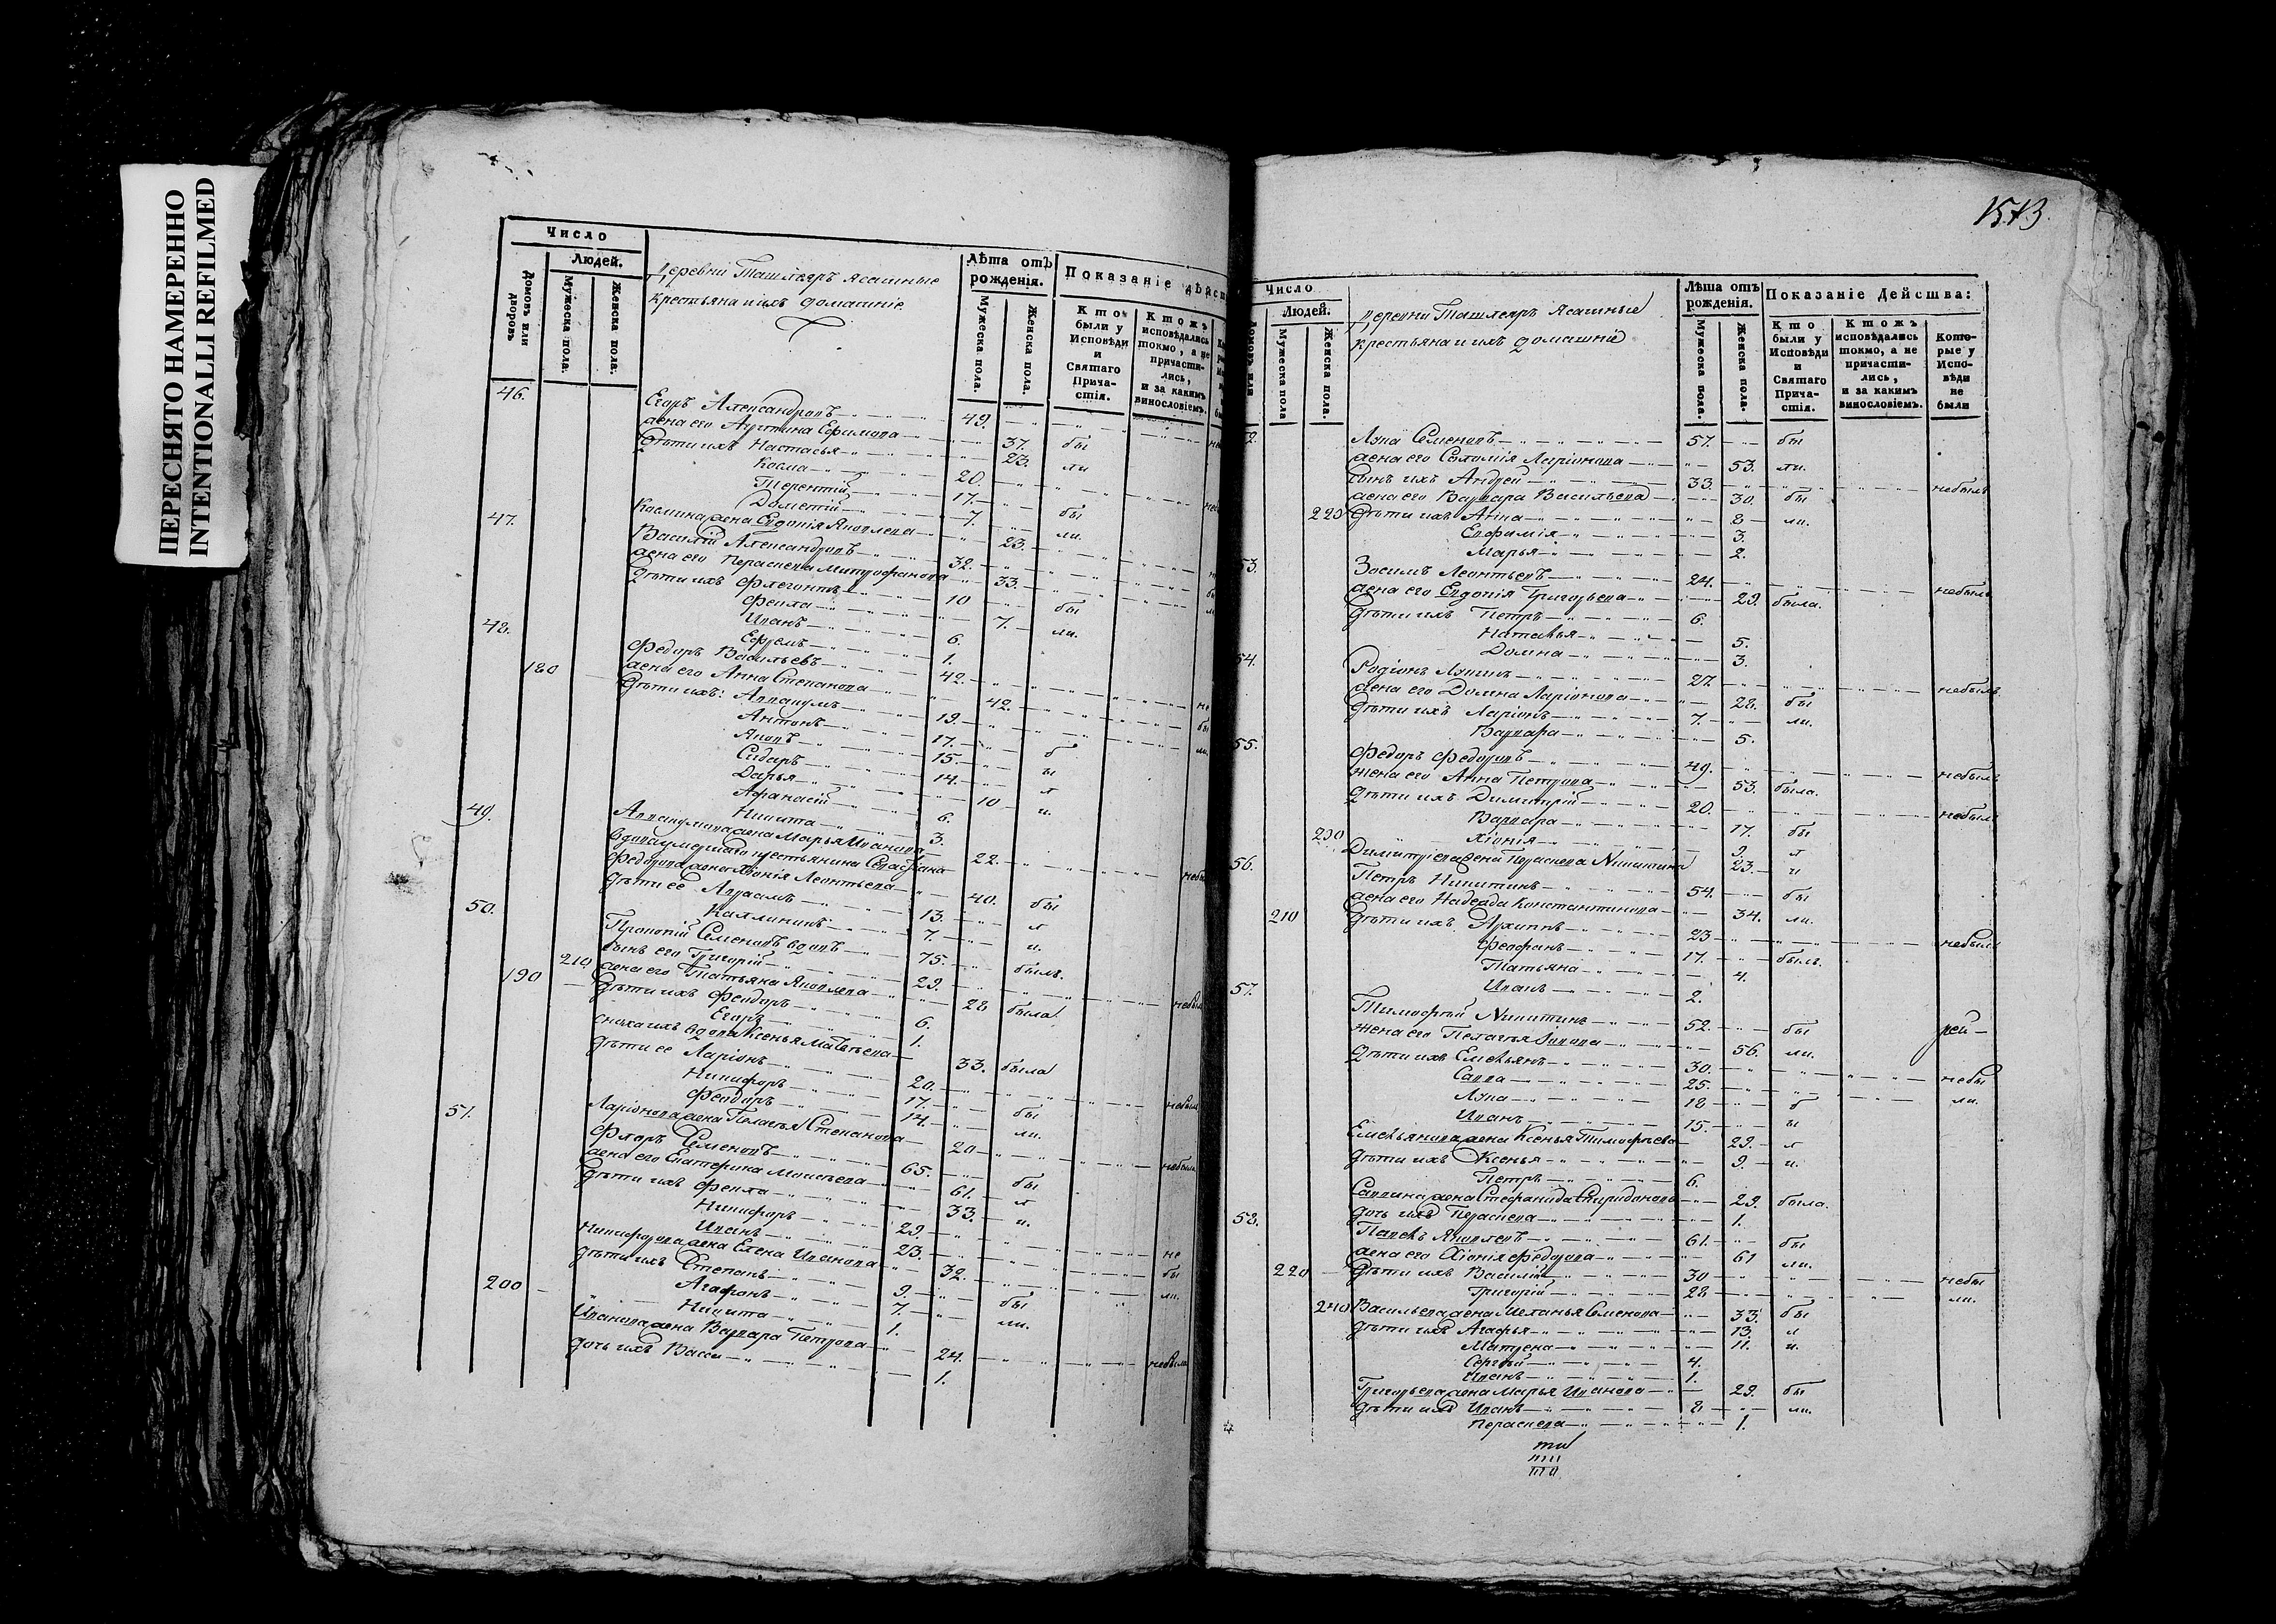 ПЕРЕСНЯТО НАМЕРЕННО
INTENTIONALLI REFILMED
Число
Людей.
Домовъ или дворовъ
Мужеска пола.
Женска пола.
Деревни Ташлияръ ясашные
крестьяна и ихъ домашніе
Лѣта отъ рожденія.
Мужеска пола.
Женска пола.
Показаніе дѣйст
Кто были у Исповѣди и Святаго Причастія.
Ктожъ исповѣдались токмо, а не причастились, и за какимъ винословіемъ.
46. Егоръ Александровъ 49.
жена его Ефимова 37. бы
дѣти ихъ Настасья 23. ли
Косма 20.
Терентій 17.
Дометій 7. бы
Космина жена Евдокія Яковлева 23. ли.
47. Василій Александровъ 32.
жена его Параскева Митрофанова 33.
дѣти ихъ Флегонтъ 10 бы
Фекла 7. ли.
Иванъ 6.
Ефремъ 1.
48. Федоръ Васильевъ 42.
180 жена его Анна Степанова 42.
дѣти ихъ: Аввакумъ 19.
Антонъ 17.
Яковъ 15. б
Сидоръ 14. ы
Дарья 10 л
Афанасій 6. и.
Никита 3.
Аввакумова жена Марья Иванова 22.
49. вдова умершаго крестьянина
Федорова жена Хіонія Леонтьева 40. бы
дѣти ее Аврамъ 13. л
Каллиникъ 7. и.
50. Прокопій Семеновъ вдовъ 75. былъ.
сынъ его Григорій 29.
210 жена его Татьяна Яковлева 28 была
190 дѣти ихъ Феидоръ 6.
Егоръ 1.
сноха ихъ вдова Ксенья Матвѣева 33. была
дѣти ее Ларіонъ 20.
Никифоръ 17. бы
Феидоръ 14. ли.
Ларіонова жена Пелагья Степанова 20
51. Флоръ Семеновъ 65. бы
жена его Екатерина Моисеева 61. л
дѣти ихъ Фекла 33. и.
Никифоръ 29.
Иванъ 23.
Никифорова жена Елена Иванова 32.
дѣти ихъ Степанъ 9. бы
Агафонъ 7. ли.
200 Никита 1.
Иванова жена Варвара Петрова 24.
дочь ихъ Васса 1.
Число
Людей.
Мужеска пола
Женска пола.
Деревни Ташлияръ Ясашные
крестьяна и ихъ домашніе
Лѣта отъ рожденія.
Мужеска пола.
Женска пола.
Показаніе Дейсшва:
Кто были у Исповѣди и Святаго Причастія.
Ктожъ исповѣдались токмо, а не причастились, и за какимъ винословіемъ.
Которые у Исповѣди не были
2. Лука Семеновъ 57. бы
жена его Соломія Ларіонова 53. ли.
сынъ ихъ Андрей 33. небылъ
жена его Варвара Васильева 30. бы
220 дѣти ихъ Анна 8 ли.
Евфимія 3.
Марья 2.
53. Зосимъ Леонтьевъ 24. небылъ
жена его Евдокія Григорьева 29. была.
дѣти ихъ Петръ 6.
Наталья 5.
Домна 3.
54. Родіонъ Лукинъ 27. небылъ
жена его Домна Ларіонова 28. бы
дѣти ихъ Ларіонъ 7. ли.
Варвара 5.
55. Федоръ Федоровъ 49. небылъ
жена его Анна Петрова 53. была.
дѣти ихъ Димитрій 20. небылъ
Варвара 17. бы
230 Хіонія 9. л
Димитріева жена Параскева Никитина 23. и
56. Петръ Никитинъ 54. бы
жена его Надежда Константинова 34. ли.
210 дѣти ихъ Архиппъ 23 небылъ
Феофанъ 17. былъ.
Татьяна 4.
Иванъ 2.
57. Тимофѣй Никитинъ 52. бы
жена его Пелагья 56. ли.
дѣти ихъ Емельянъ 30. небы
Савва 25. ли.
Лука 18 б
Иванъ 15. ы
Емельянова жена Ксенья Тимофѣева 29. л
дѣти ихъ Ксенья 9. и.
Петръ 6.
Саввина жена Стефанида Спиридонова 29. была.
дочь ихъ Параскева 1.
58. Павелъ Яковлевъ 61. бы
жена его Хіонія Федорова 61 ли.
220 дѣти ихъ Василій 30 небы
Григорій 28 ли.
240 Васильева жена Меланья Семенова 33. бы
дѣти ихъ Агафья 13. л
Матрена 11. и.
Сергѣй 4.
Иванъ 1.
Григорьева жена Марья Иванова 29. бы
дѣти ихъ Иванъ 8 ли.
Параскева 1.